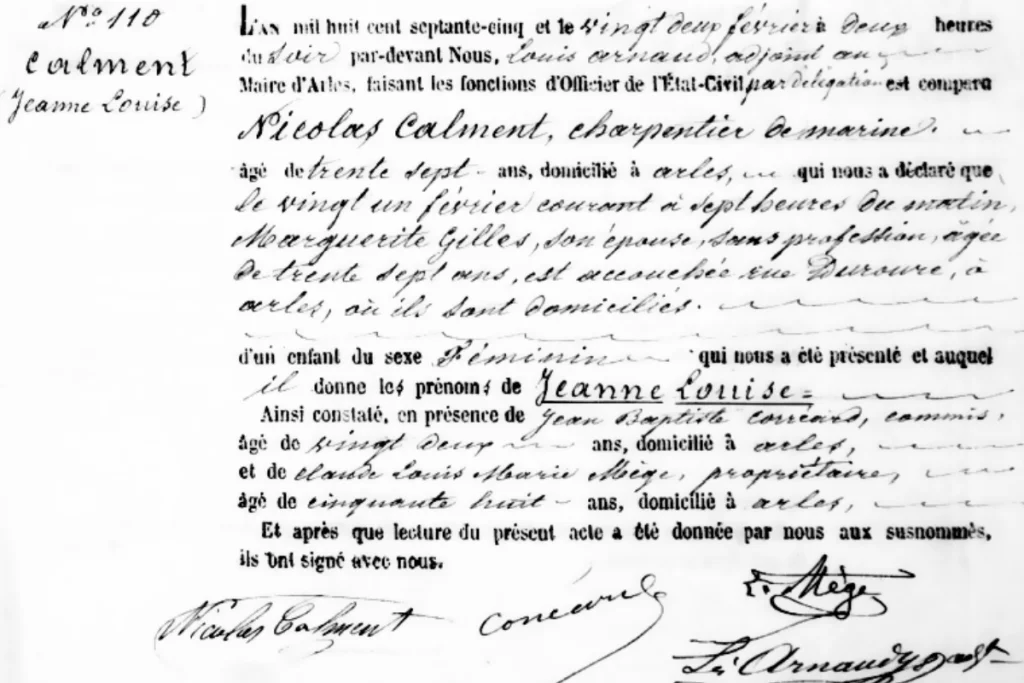 N° 110
Calment
(Jeanne Louise)
L'AN mil huit cent septante-cinq et le vingt deux février à deux heures
du soir par-devant Nous, Louis arnaud, adjoint au
Maire d'Arles, faisant les fonctions d'Officier de l'État-Civil par délégation est comparu
Nicolas Calment, charpentier de marine.
âgé de trente sept ans, domicilié à arles, qui nous a déclaré que
le vingt un février courant à sept heures du matin,
Marguerite Gilles, son épouse, sans profession, âgée
de trente sept ans, est accouchée rue Duroure, à
arles, où ils sont domiciliés.
d'un enfant du sexe Féminin qui nous a été présenté et auquel
il donne les prénoms de Jeanne Louise=
Ainsi constaté, en présence de Jean Baptiste Corréard, commis,
âgé de vingt deux ans, domicilié à arles,
et de claude Louis Marie Mège, propriétaire,
âgé de cinquante huit ans, domicilié à arles,
Et après que lecture du présent acte a été donnée par nous aux susnommés,
ils ont signé avec nous.
Nicolas Calment
Mège
Arnaud